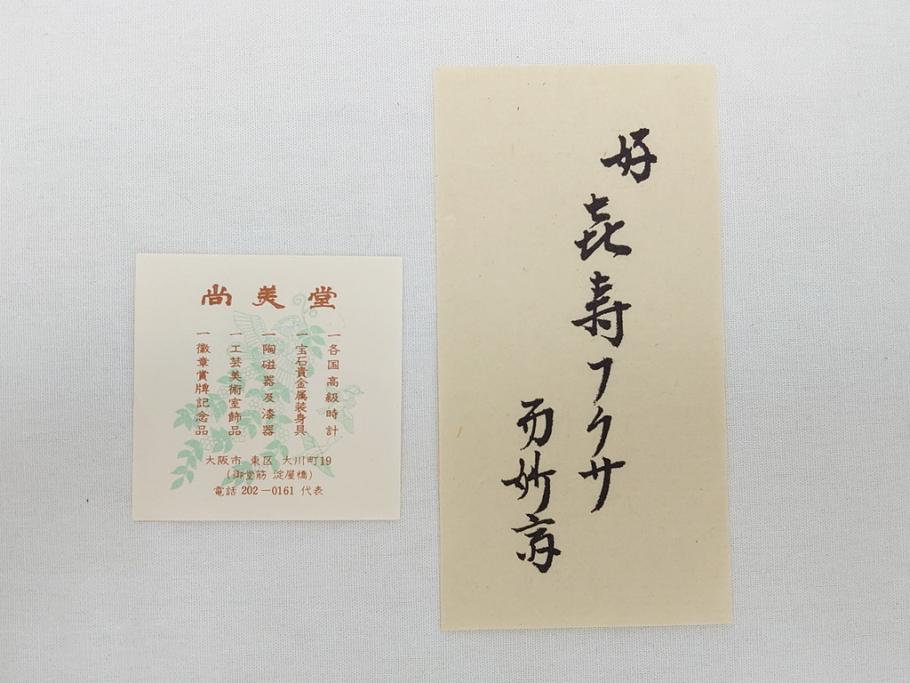 尚美堂
一各国高級時計
一宝石貴金属装身具
一陶磁器及漆器
一工芸美術室飾品
一徽章賞牌記念品
大阪市 東区 大川町19
(御堂筋 淀屋橋)
電話 202-0161 代表
好
㐂寿フクサ
而妙斎